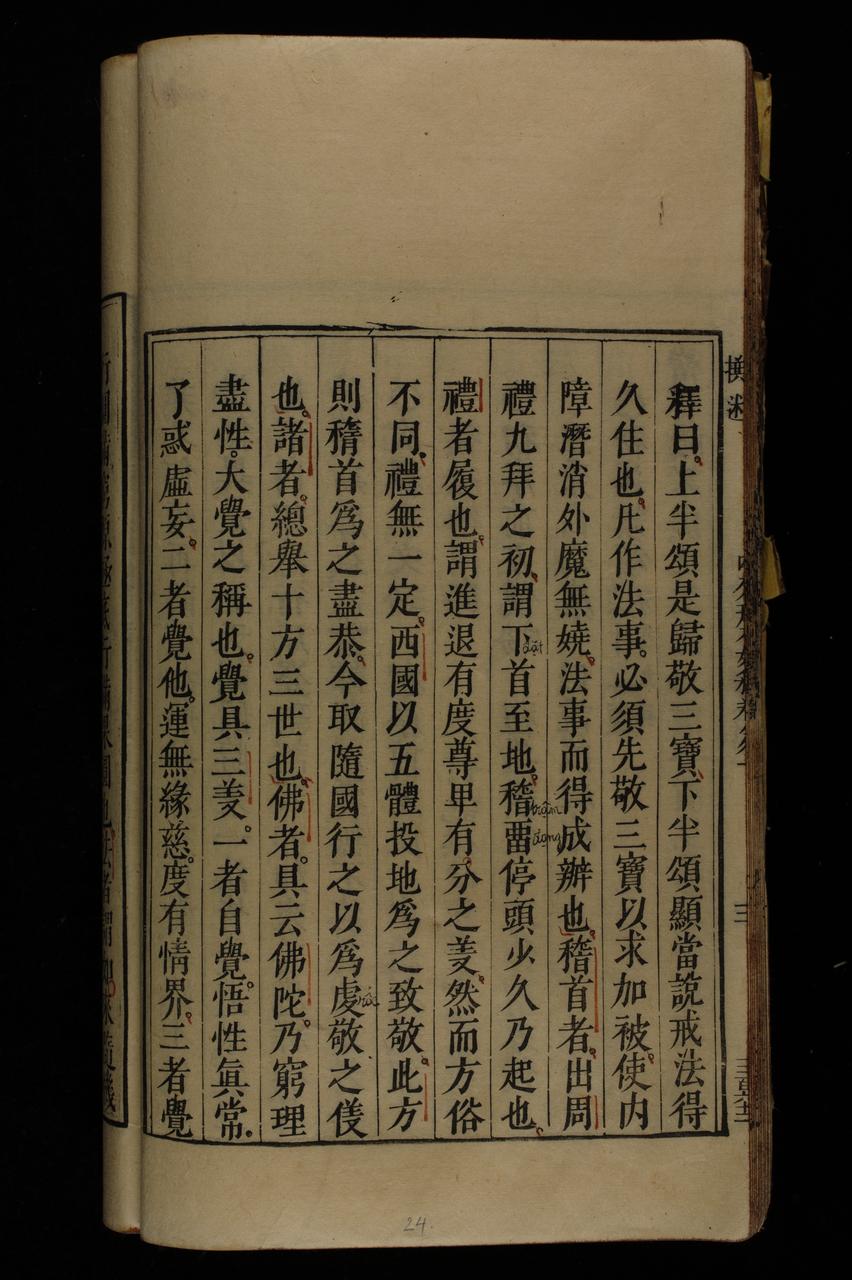 釋曰上半頌是歸敬三寶下半頌顯當說戒法得
久住也凡作法事必須先敬三寶以求加被使內
障潛消外魔無嬈法事而得成辦也稽首者出周
禮九拜之初謂下首至地稽畱停頭少久乃起也
禮者履也謂進退有度尊卑有分之义然而方俗
不同禮無一定西國以五體投地爲之致敬此方
則稽首爲之盡恭今取隨國行之以爲虔敬之儀
也諸者總舉十方三世也佛者具云佛陀乃窮理
盡性大覺之稱也覺具三义一者自覺悟性眞常
了惑虛妄二者覺他運無緣慈度有情界三者覺
24